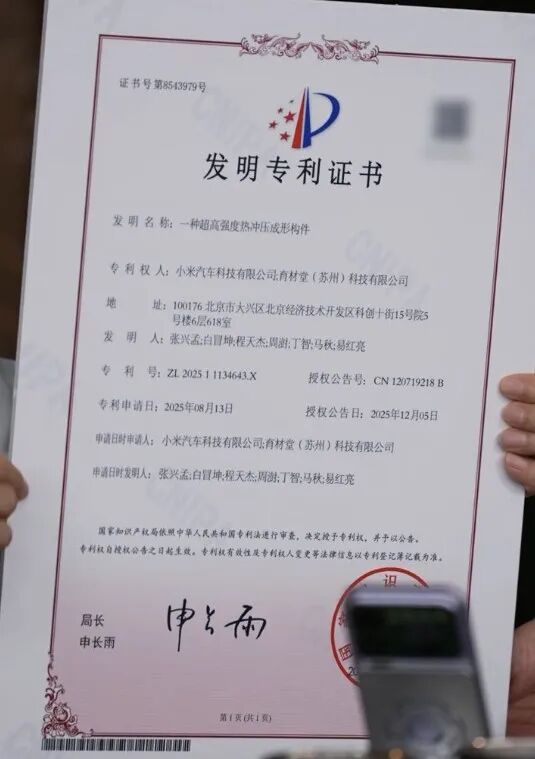 证书号第8543979号
发明专利证书
发明名称：一种超高强度热冲压成形构件
专利权人：小米汽车科技有限公司;育材堂（苏州）科技有限公司
地址：100176 北京市大兴区北京经济技术开发区科创十街15号院5
号楼6层618室
发明人：张兴孟;白冒坤;程天杰;周澍;丁智;马秋;易红亮
专利号：ZL 2025 1 1134643.X 授权公告号：CN 120719218 B
专利申请日：2025年08月13日 授权公告日：2025年12月05日
申请日时申请人：小米汽车科技有限公司;育材堂（苏州）科技有限公司
申请日时发明人：张兴孟;白冒坤;程天杰;周澍;丁智;马秋;易红亮
国家知识产权局依照中华人民共和国专利法进行审查，决定授予专利权，并予以公告。
专利权自授权公告之日起生效。专利权有效性及专利权人变更等法律信息以专利登记簿记载为准。
局长
申长雨
申长雨
第1页(共1页)